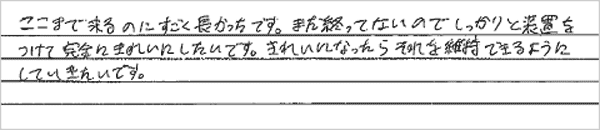 ここまで来るのにすごく長かったです。まだ終ってないのでしっかりと装置を
つけて完全にきれいにしたいです。きれいになったらそれを維持できるように
していきたいです。